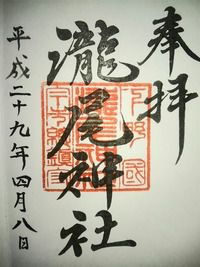 奉拝
瀧尾神社
平成二十九年四月八日